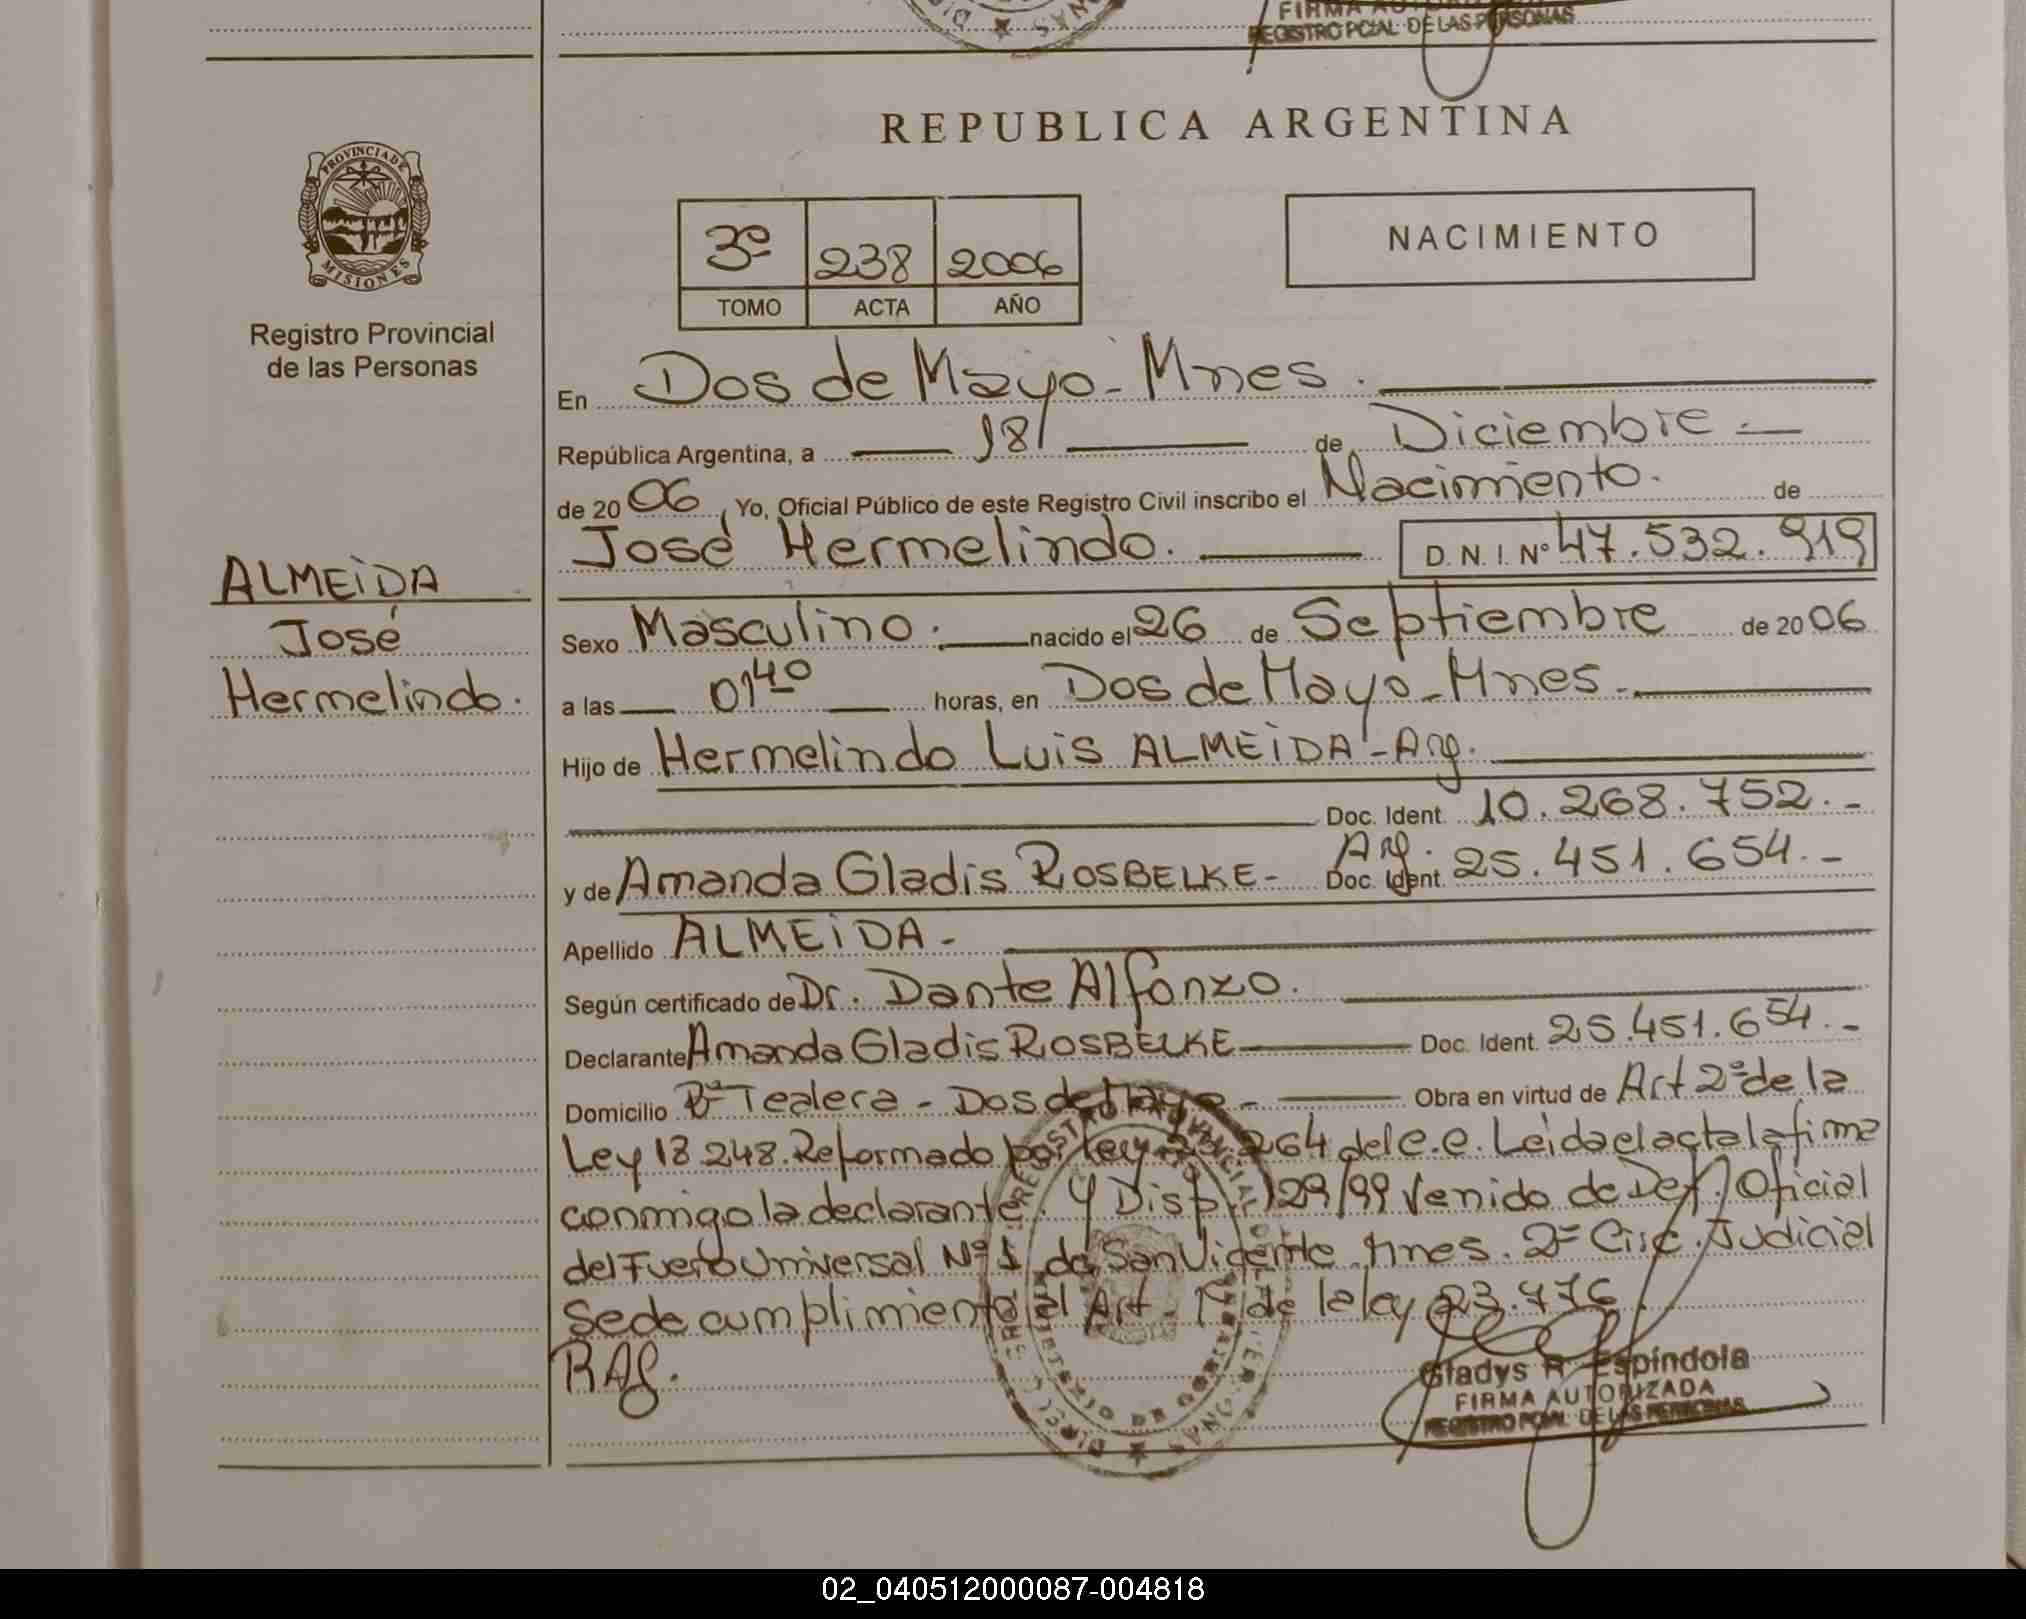 FIRMA AUTORIZADA
REGISTRO PCIAL. DE LAS PERSONAS
REPUBLICA ARGENTINA
PROVINCIA DE
MISIONES
Registro Provincial
de las Personas
3º 238 2006
TOMO ACTA AÑO
NACIMIENTO
En Dos de Mayo - Mnes.
República Argentina, a 18 de Diciembre.-
de 2006, Yo, Oficial Público de este Registro Civil inscribo el Nacimiento. de
José Hermelindo. D. N. I. Nº 47.532.919
ALMEiDA
José
Hermelindo.
Sexo Masculino. nacido el 26 de Septiembre de 2006
a las 01⁴⁰ horas, en Dos de Mayo - Mnes.
Hijo de Hermelindo Luis ALMEiDA - Arg.
Doc. Ident. 10.268.752.-
y de Amanda Gladis ROSBELKE - Arg. Doc. Ident. 25.451.654.-
Apellido ALMEiDA -
Según certificado de Dr. Dante Alfonzo.
Declarante Amanda Gladis ROSBELKE Doc. Ident. 25.451.654.-
Domicilio Bº Tealera - Dos de Mayo - Obra en virtud de Art 2º de la
Ley 18.248. Reformado por Ley 264 del C.C. Leida el acta la firma
conmigo la declarante. Y Disp. 129/99 Venido de Def. Oficial
del Fuero Universal Nº 1 de San Vicente Mnes. 2º Circ. Judicial
Sede cumplimiento al Art. 1º de la ley 23.776
RAG.
Gladys R. Espíndola
FIRMA AUTORIZADA
REGISTRO PCIAL. DE LAS PERSONAS
02_040512000087-004818